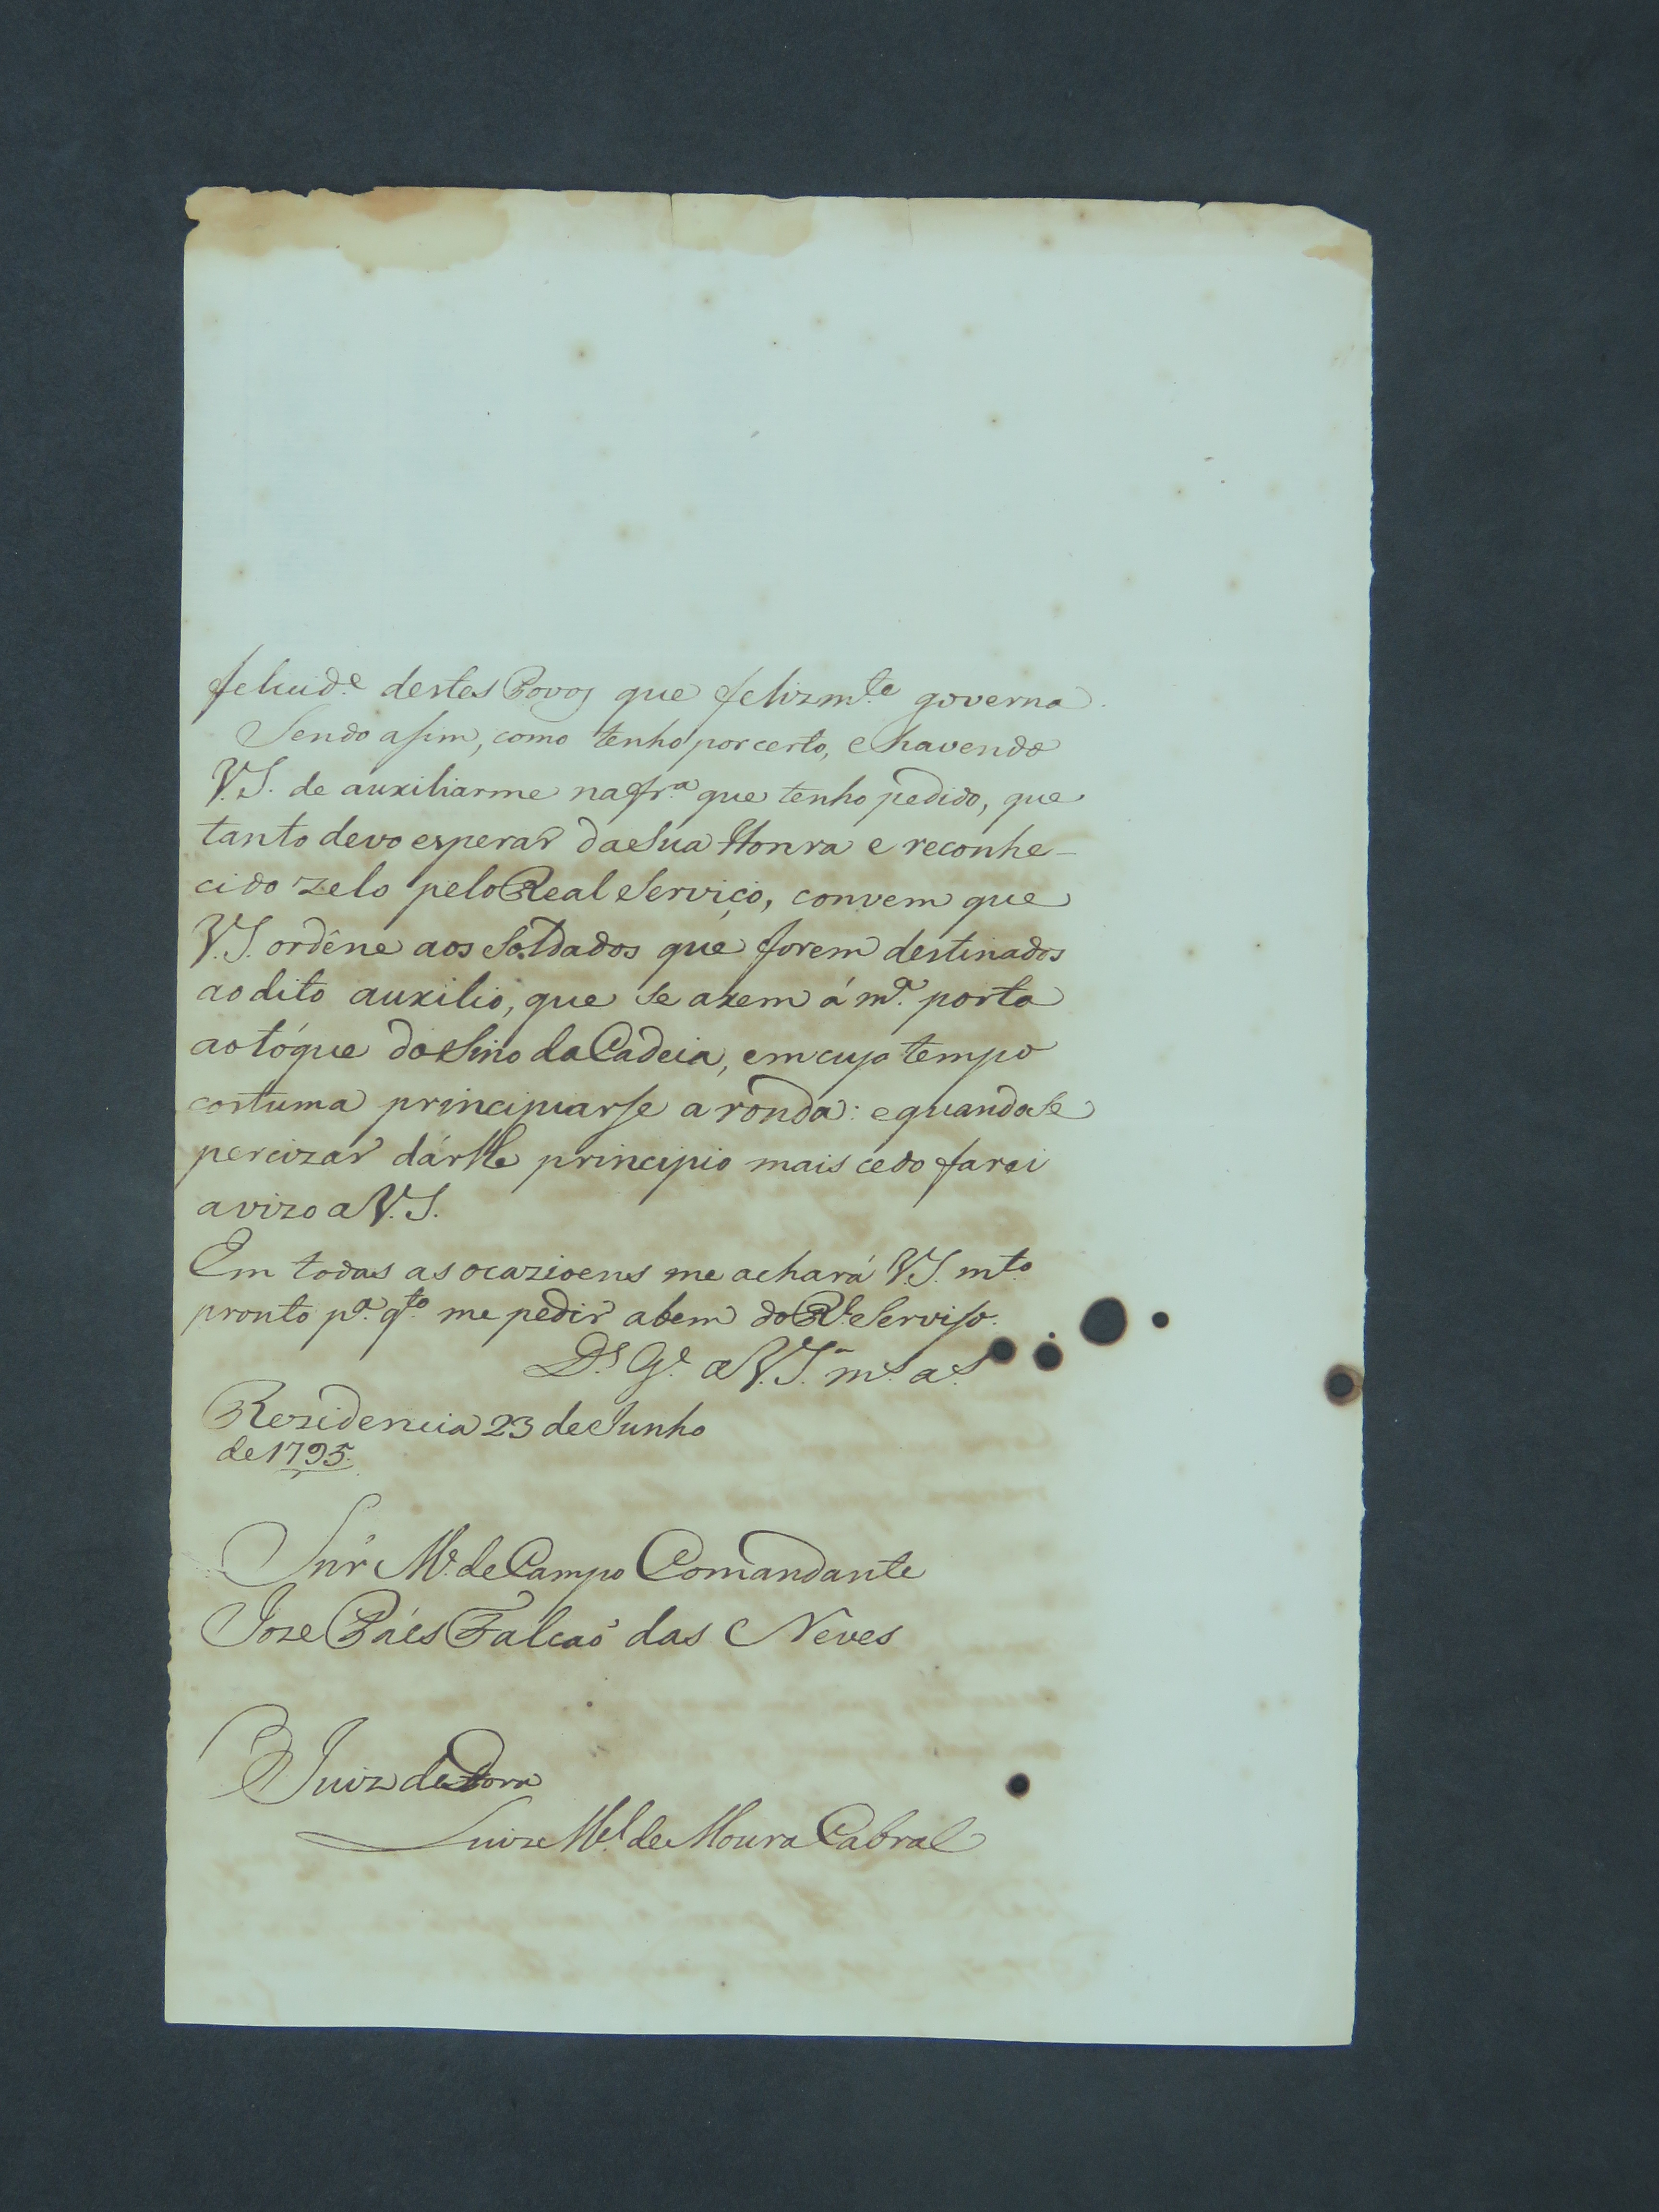 felicid.e destes Povos que felizm.te governa.
Sendo assim, como tenho por certo, e havendo
V.S. de auxiliarme na fr.a que tenho pedido, que
tanto devo esperar da sua Honra e reconhe-
cido zelo pelo Real Serviço, convem que
V.S. ordêne aos Soldados que forem destinados
ao dito auxilio, que se axem á m.a porta
ao tóque do Sino da Cadeia, em cujo tempo
costuma principiarse a ronda: e quando se
percizar dárlhe principio mais cedo farei
avizo a V.S.
Em todas as ocazioens me achará V.S. m.to
pronto p.a q.to me pedir a bem do R.l Serviso.
D.s G.e a V.S. m.s a.s
Rezidencia 23 de Junho
de 1795.
Snr' M.e de Campo Comandante
Joze Páes Falcaõ das Neves
Juiz de Fora
Luiz M.el de Moura Cabral